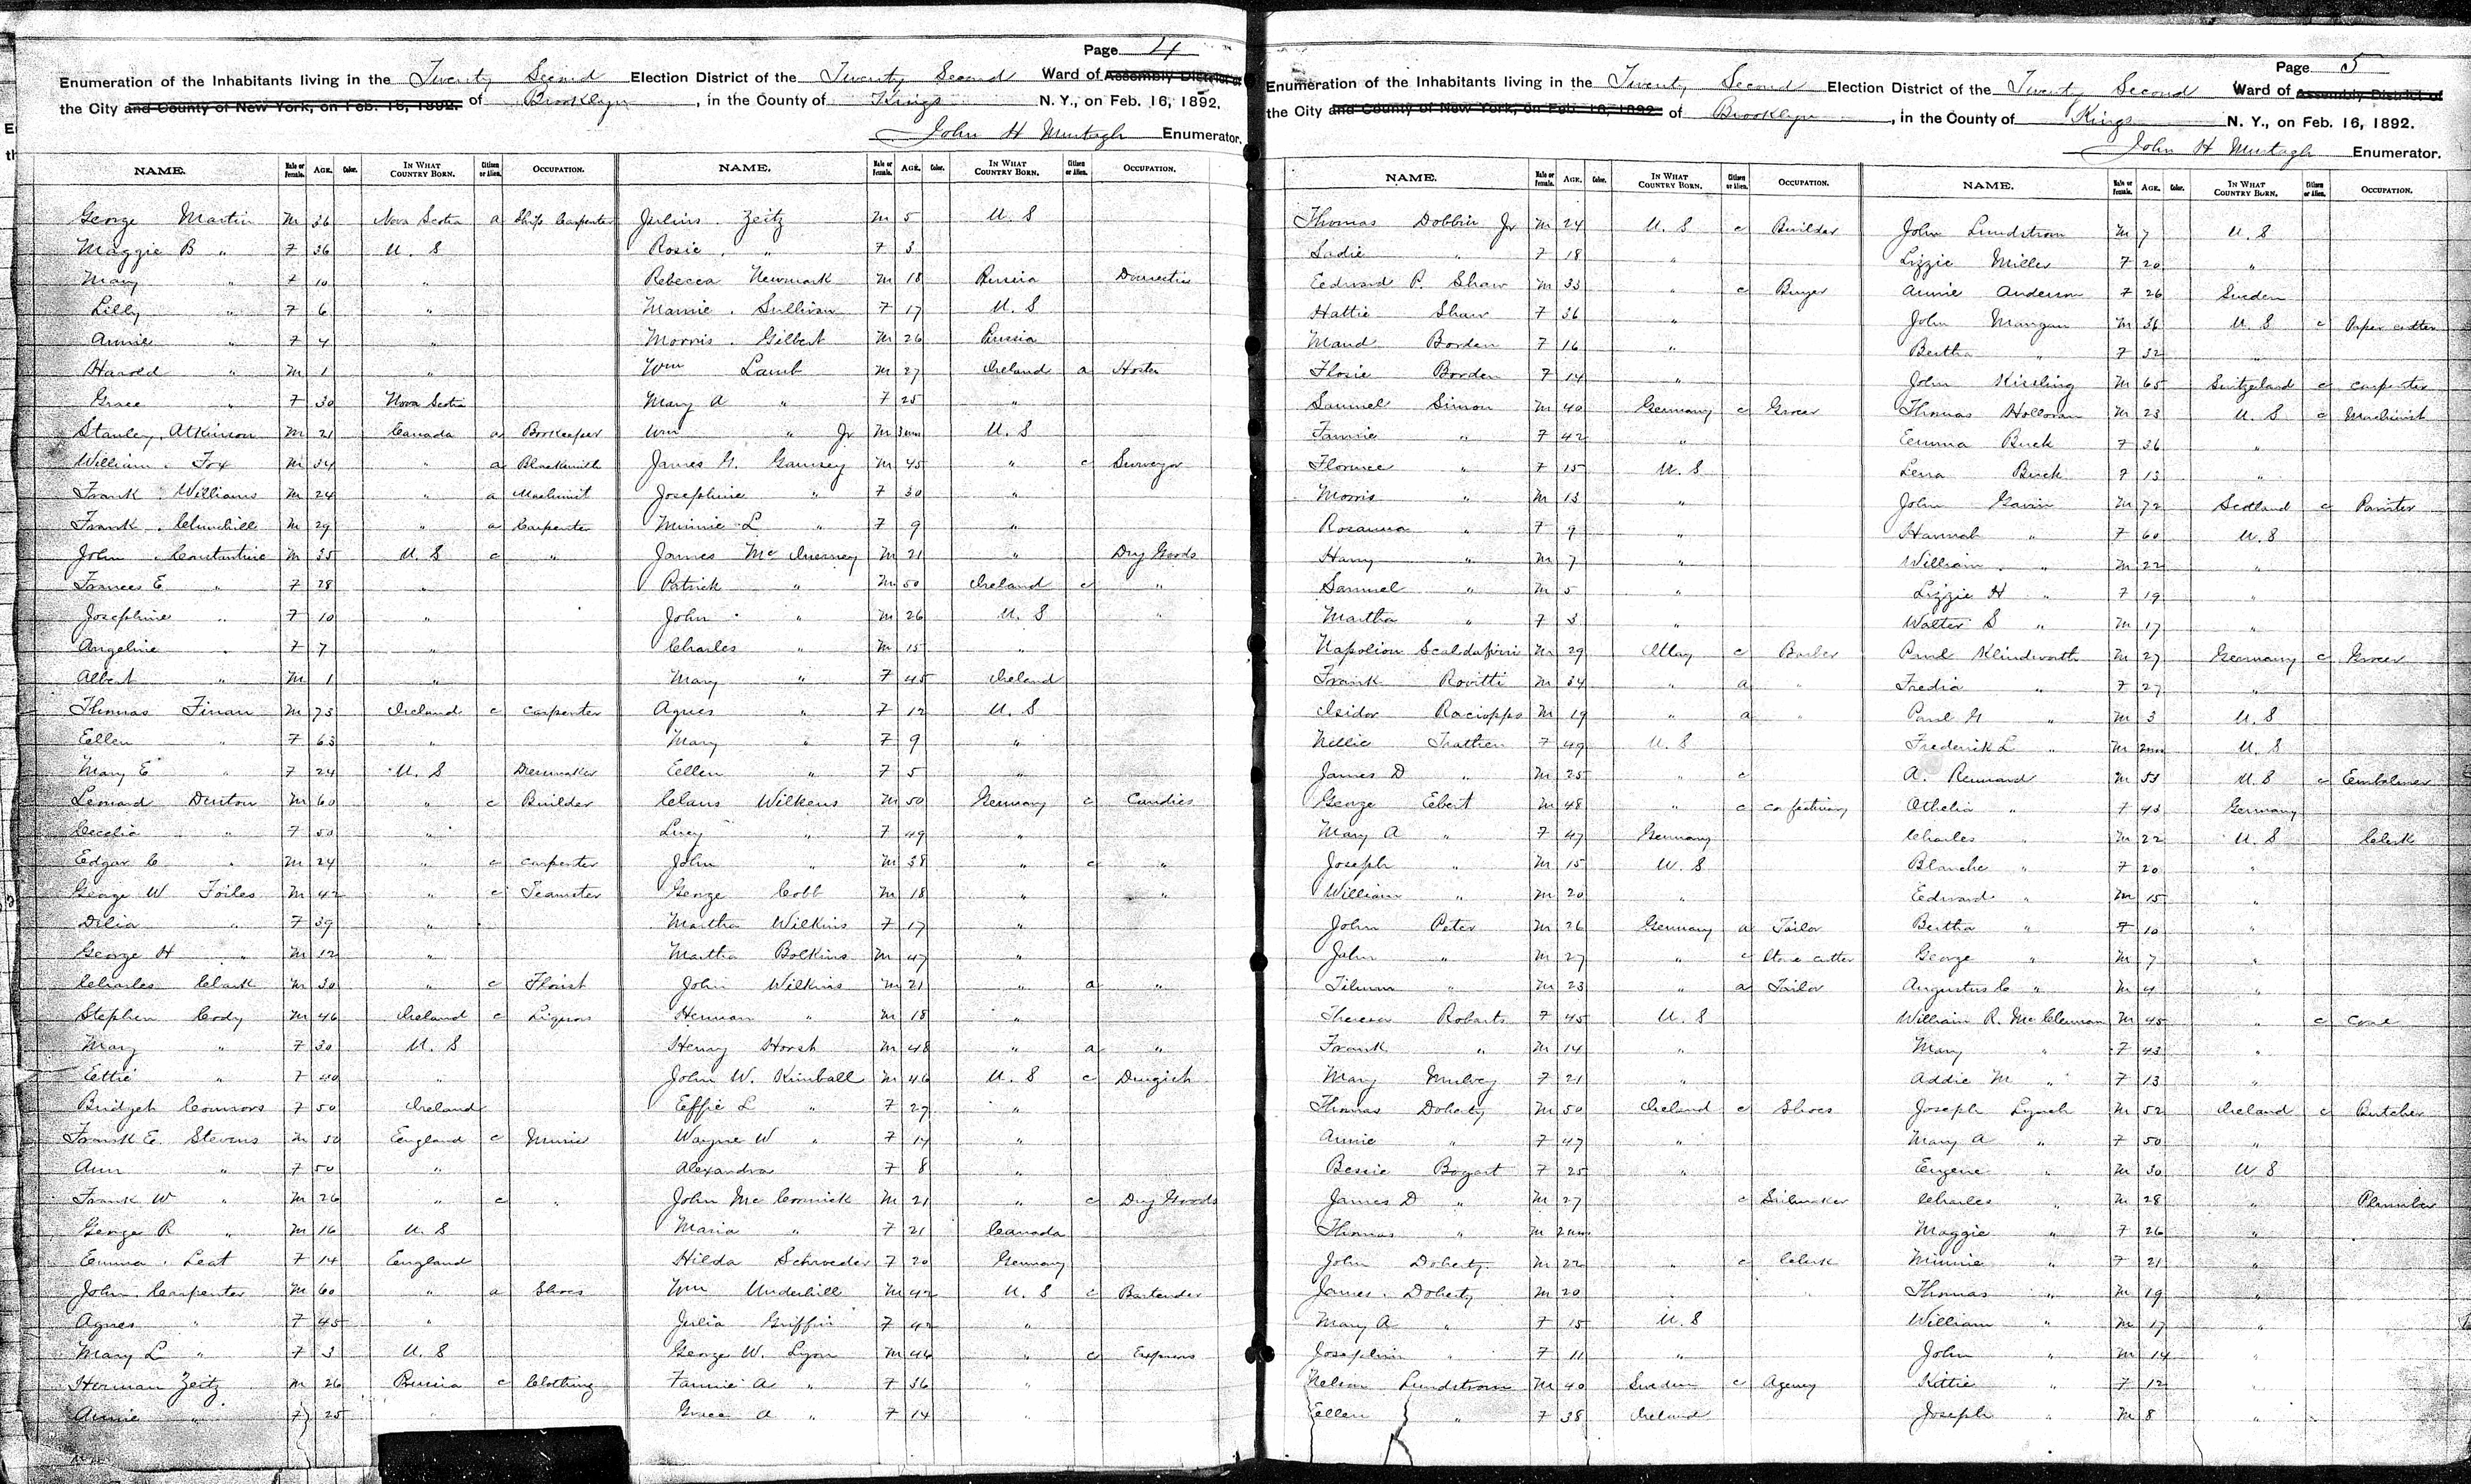 Page 4
Enumeration of the Inhabitants living in the Twenty Second Election District of the Twenty Second Ward of Assembly District of
the City and County of New York, on Feb. 16, 1892. of Brooklyn, in the County of Kings N. Y., on Feb. 16, 1892.
John H Murtagh Enumerator.
NAME. Male or Female. AGE. Color. IN WHAT COUNTRY BORN. Citizen or Alien. OCCUPATION.
George Martin M 36 Nova Scotia a Ship Carpenter
Maggie B " F 36 U. S
Mary " F 10 "
Lilly " F 6 "
Annie " F 4 "
Harold " M 1 "
Grace " F 30 Nova Scotia
Stanley Atkinson M 21 Canada a Bookeeper
William Fox M 34 " a Blacksmith
Frank Williams M 24 " a Machinist
Frank Churchill M 29 " a Carpenter
John Constantine M 35 U. S c "
Frances E " F 28 "
Josephine " F 10 "
Angeline " F 7 "
Albert " M 1 "
Thomas Finan M 73 Ireland c Carpenter
Eellen " F 63 "
Mary E " F 24 U. S Dressmaker
Leonard Denton M 60 " c Builder
Cecelia " F 50 "
Edgar C " M 24 " c Carpenter
George W Foiles M 42 " c Teamster
Delia " F 39 "
George H " M 12 "
Charles Clark M 30 " c Florist
Stephen Cody M 46 Ireland c Liquors
Mary " F 30 U. S
Eettie " F 40 "
Bridget Connors F 50 Ireland
Frank E. Stevens M 50 England c Music
Ann " F 50 "
Frank W " M 26 " c "
George R " M 16 U. S
Emma Leat F 14 England
John Carpenter M 60 " a Shoes
Agnes " F 45 "
Mary L " F 3 U. S
Herman Zeitz M 26 Russia c Clothing
Annie " F 25 "
NAME. Male or Female. AGE. Color. IN WHAT COUNTRY BORN. Citizen or Alien. OCCUPATION.
Julius Zeitz M 5 U. S
Rosie " F 3
Rebecca Newmark M 18 Russia Domestic
Mamie Sullivan F 17 U. S
Morris Gilbert M 26 Russia
Wm Lamb M 27 Ireland a Hosler
Mary A " F 25 "
Wm " Jr M 3mos U. S
James G. Garnsey M 45 " c Surveyor
Josephine " F 30 "
Minnie L " F 9 "
James McInerney M 21 " Dry Goods
Patrick " M 50 Ireland c "
John " M 26 U. S "
Charles " M 15 "
Mary " F 45 Ireland
Agnes " F 12 U. S
Mary " F 9 "
Eellen " F 5 "
Claus Wilkens M 50 Germany c Candies
Lucy " F 49 "
John " M 38 " c "
George Cobb M 18 " "
Martha Wilkins F 17 "
Martha Bolkins M 47 "
John Wilkins M 21 " a "
Herman " M 18 "
Henry Horsh M 48 " a "
John W. Kimball M 46 U. S c Drugist
Effie L " F 27 "
Wayne W " F 14 "
Alexandra F 8 "
John McCormick M 21 " c Dry Goods
Maria " F 21 Canada
Hilda Schroeder F 20 Germany
Wm Underhill M 42 U. S c Bartender
Julia Griffin F 42 "
George W. Lyon M 46 " c Express
Fannie A " F 36 "
Grace A " F 14 "
Page 5
Enumeration of the Inhabitants living in the Twenty Second Election District of the Twenty Second Ward of Assembly District of
the City and County of New York, on Feb. 16, 1892. of Brooklyn, in the County of Kings N. Y., on Feb. 16, 1892.
John H Murtagh Enumerator.
NAME. Male or Female. AGE. Color. IN WHAT COUNTRY BORN. Citizen or Alien. OCCUPATION.
Thomas Dobbin Jr M 24 U. S c Builder
Sadie " F 18 "
Eedward P. Shaw M 33 " c Buyer
Hattie Shaw F 36 "
Maud Borden F 16 "
Flosie Borden F 14 "
Samuel Simon M 40 Germany c Grocer
Fannie " F 42 "
Florence " F 15 U. S
Morris " M 13 "
Rosanna " F 9 "
Harry " M 7 "
Samuel " M 5 "
Martha " F 3 "
Napolion Scaldaferri M 29 Itlay c Barber
Frank Rovitti M 34 " a "
Isidor Racioppo M 19 " a "
Nellie Trathen F 49 U. S
James D " M 25 " c
George Ebert M 48 " c
Mary A " F 47 Germany
Joseph " M 15 U. S
William " M 20 "
John Peter M 26 Germany a Tailor
John " M 27 " c Stone cutter
Tilman " M 23 " a Tailor
Theresa Robarts F 45 U. S
Frank " M 14 "
Mary Mulvey F 21 "
Thomas Doherty M 50 Ireland c Shoes
Annie " F 47 "
Bessie Bogart F 25 "
James D " M 27 c
Thomas " M 2mos
John Doherty M 22 " c Clerk
James Doherty M 20 "
Mary A " F 15 U. S
Josephine " F 11 "
Nelson Lundstrom M 40 Sweden c Agency
Eellen " F 38 Ireland
NAME. Male or Female. AGE. Color. IN WHAT COUNTRY BORN. Citizen or Alien. OCCUPATION.
John Lundstrom M 7 U. S
Lizzie Miller F 20 "
Annie Anderson F 26 Sweden
John Mangan M 36 U. S c Paper cutter
Bertha " F 32 "
John Kissling M 65 Switzerland c Carpenter
Thomas Holloran M 23 U. S c Machinist
Eemma Buck F 36 "
Lena Buck F 13 "
John Gavin M 72 Scotland c Painter
Hannah " F 60 U. S
William " M 22 "
Lizzie H " F 19 "
Walter S " M 17 "
Paul Klindworth M 27 Germany c Grocer
Fredia " F 27 "
Paul G " M 3 U. S
Frederick L " M 2mos U. S
A. Renuard M 53 U. S c Eembalmer
Othelia " F 43 Germany
Charles " M 22 U. S Clerk
Blanche " F 20 "
Eedward " M 15 "
Bertha " F 10 "
George " M 7 "
Augustus C " M 4 "
William R. McClennan M 45 " c Coal
Mary " F 43 "
Addie M " F 13 "
Joseph Lynch M 52 Ireland c Butcher
Mary A " F 50 "
Eugene " M 30 U S
Charles " M 28 " Plumber
Maggie " F 26 "
Minnie " F 21 "
Thomas " M 19 "
William " M 17 "
John " M 14 "
Katie " F 12 "
Joseph " M 8 "